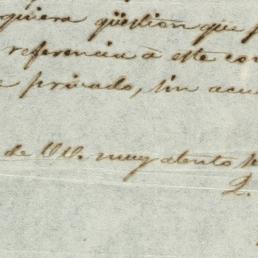 quiera qüestion que
referencia à este con
privado, sin acu
de VV. muy atento